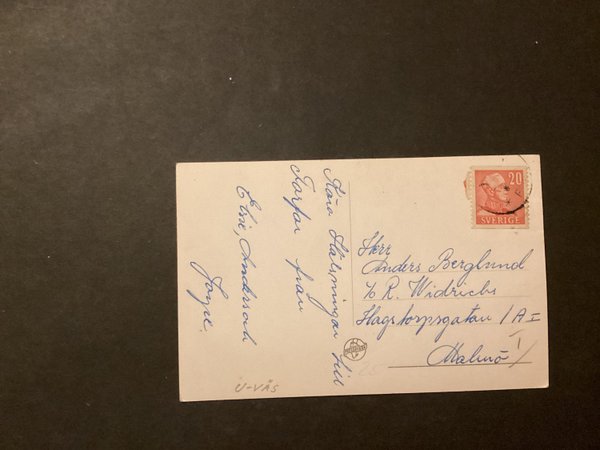 Kära Hälsningar till
Farfar från
Elsie, Anders och
Jörgen
20
SVERIGE
Herr
Anders Berglund
℅ R. Widrichs
Hagstorpsgatan 1 A I
Malmö
U-VÅS